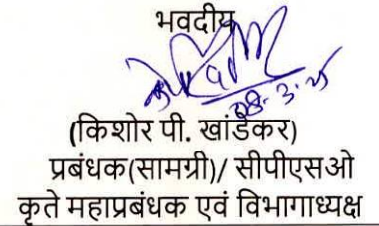 भवदीय
28.3.25
(किशोर पी. खांडेकर)
प्रबंधक(सामग्री)/ सीपीएसओ
कृते महाप्रबंधक एवं विभागाध्यक्ष